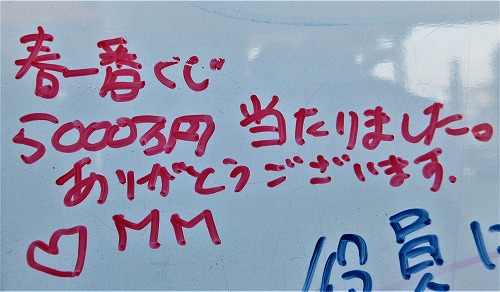 春一番くじ
5000万円 当たりました。
ありがとうございます.
♡ MM
役員は